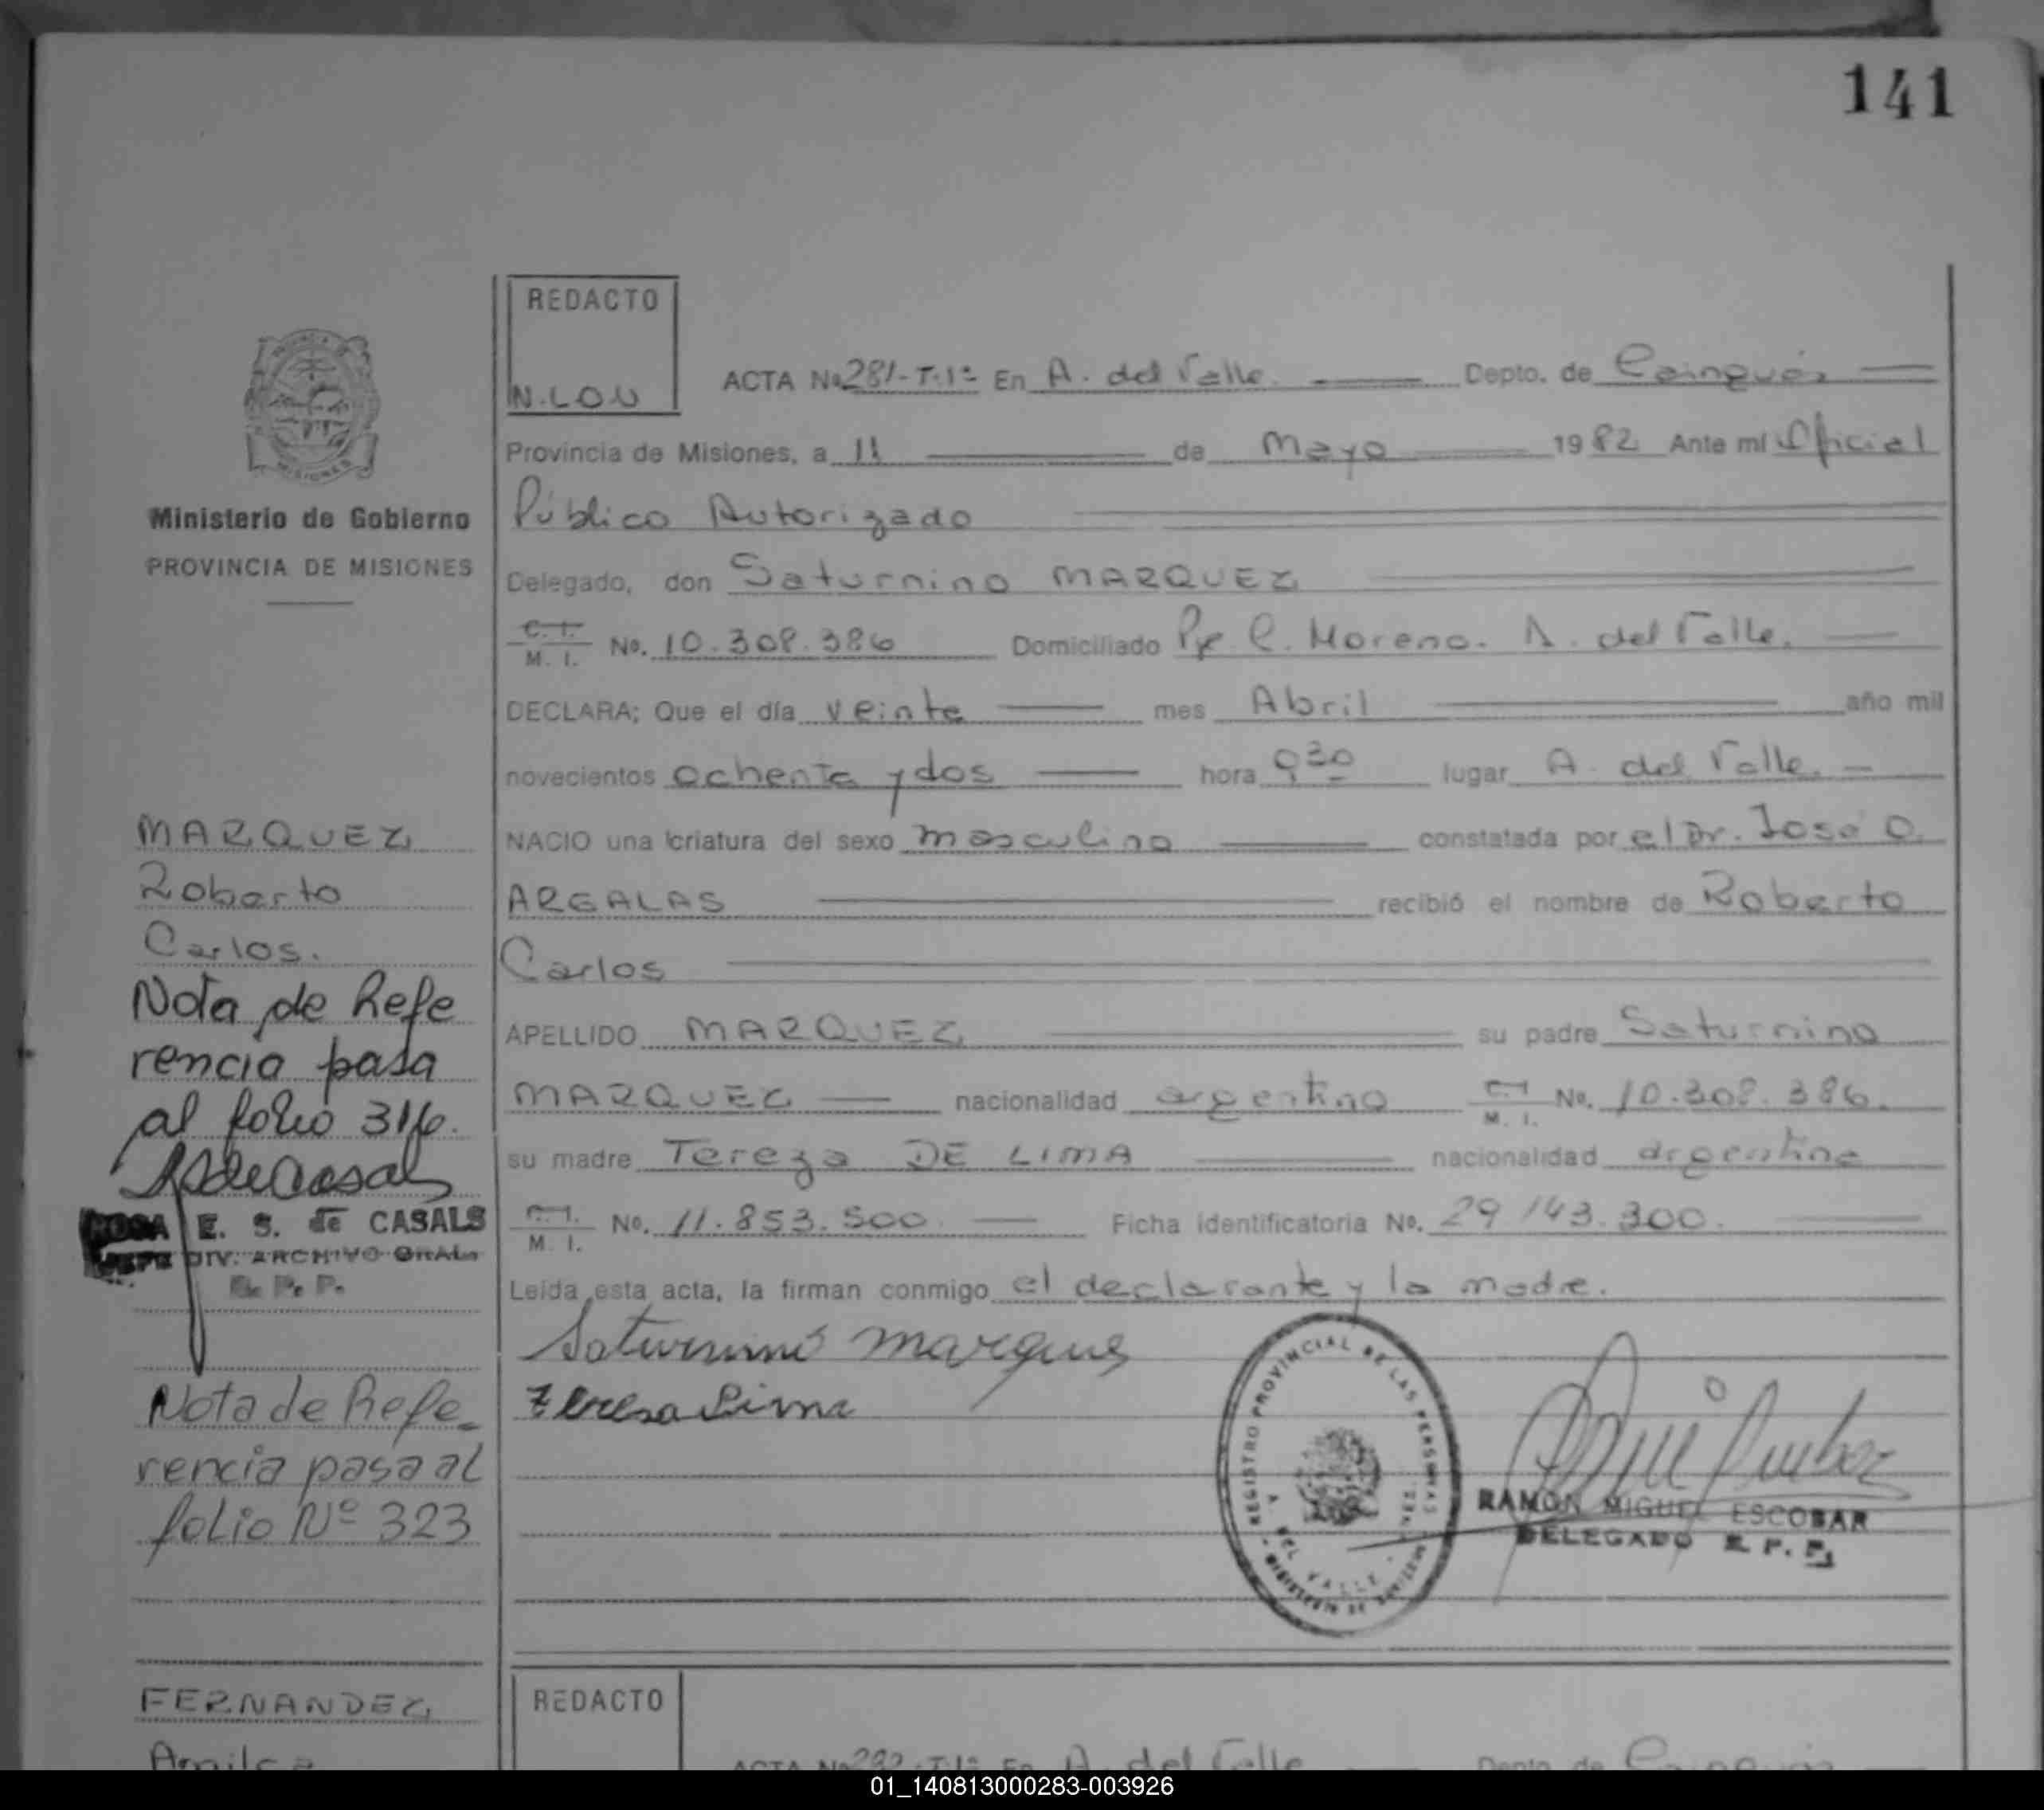 141
REDACTO
N.LOU
ACTA No 281-T.1º En A. del Valle. Depto. de Cainguás
Provincia de Misiones, a 11 de Mayo 1982 Ante mí Oficial
Público Autorizado
Delegado, don Saturnino MARQUEZ
C. I. M. I. No. 10.308.386 Domiciliado Pje C. Moreno. A. del Valle.
DECLARA; Que el día veinte mes Abril año mil
novecientos ochenta y dos hora 9 30 lugar A. del Valle.
NACIO una criatura del sexo masculino constatada por el Dr. José O.
ARGALAS recibió el nombre de Roberto
Carlos
APELLIDO MARQUEZ su padre Saturnino
MARQUEZ nacionalidad argentino C.I. M. I. No. 10.308.386.
su madre Tereza DE LIMA nacionalidad argentina
C.I. M. I. No. 11.853.500. Ficha identificatoria No. 29.143.300.
Leída esta acta, la firman conmigo el declarante y la madre.
Saturnino Marques
Teresa Lima
REGISTRO PROVINCIAL DE LAS PERSONAS
A DEL VALLE
RAMON MIGUEL ESCOBAR
DELEGADO R. P. P.
MISIONES
Ministerio de Gobierno
PROVINCIA DE MISIONES
MARQUEZ
Roberto
Carlos.
Nota de Refe
rencia pasa
al folio 316.
E. S. de CASALS
DIV. ARCHIVO GRAL.
R. P. P.
Nota de Refe-
rencia pasa al
folio Nº 323
FERNANDEZ
REDACTO
ACTA No 282-T.1º En A. del Valle Depto de Cainguás
01_140813000283-003926